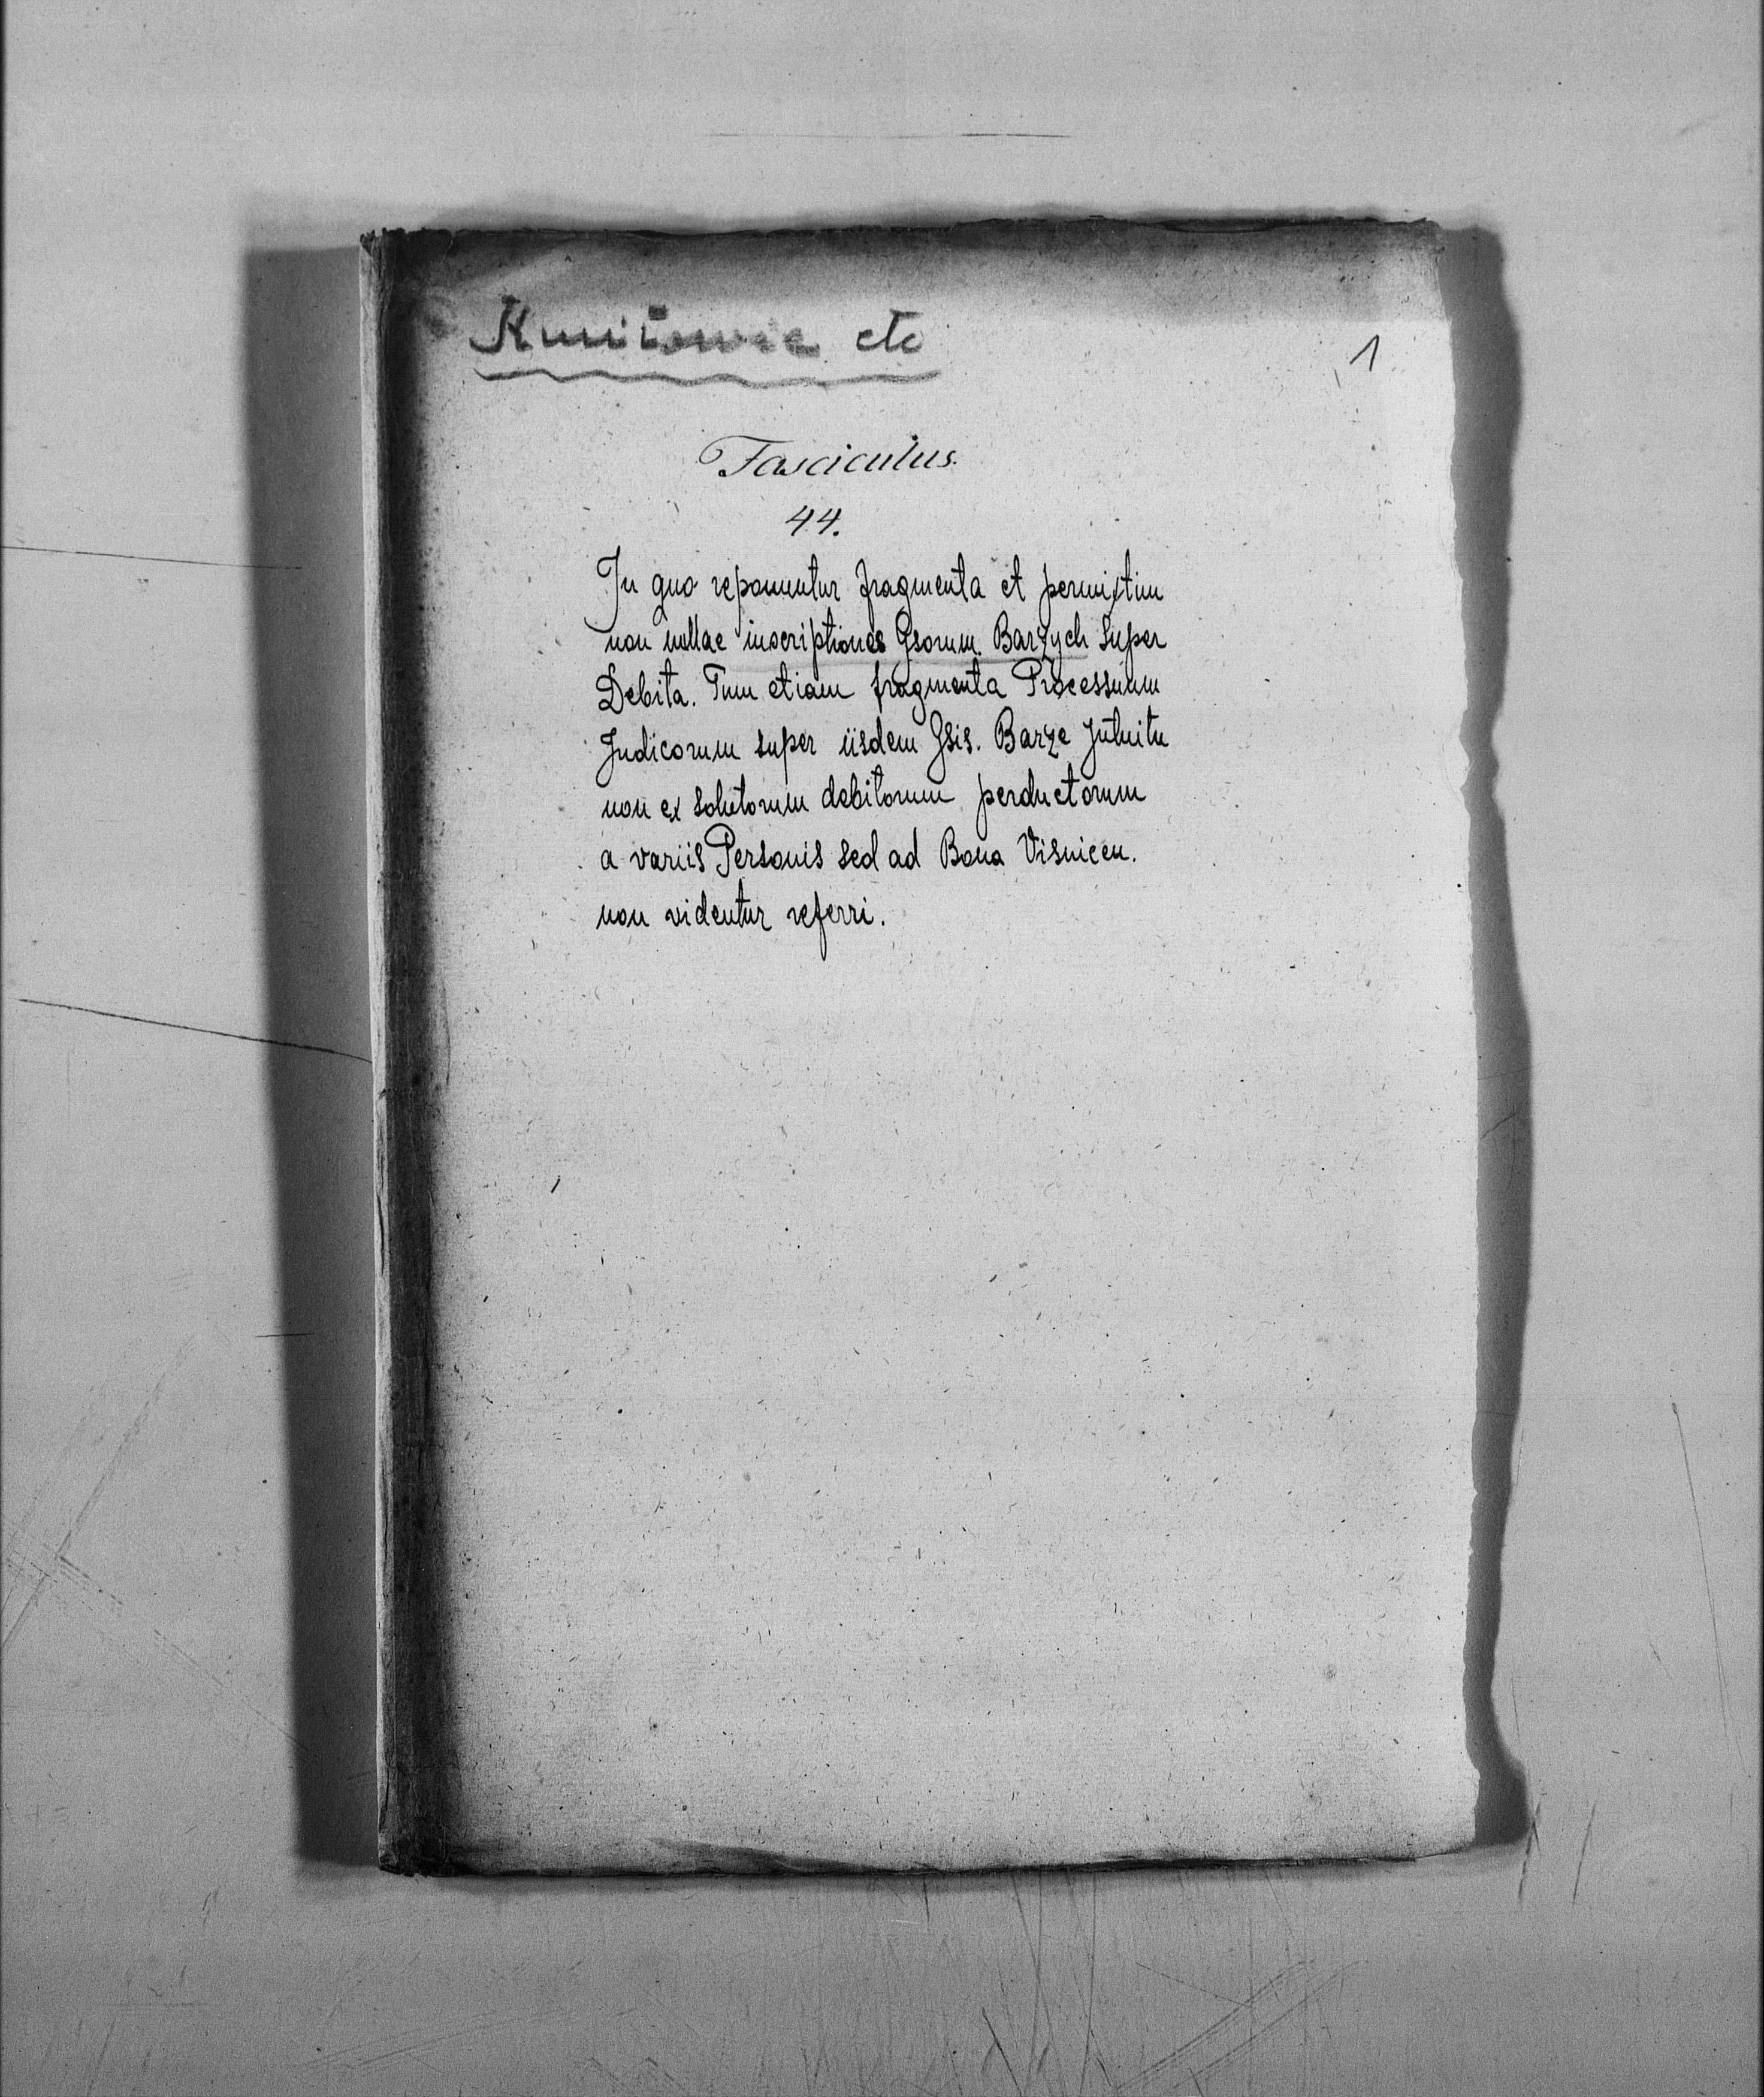 etc
1
Fasciculus.
44.
In quo reponuntur fragmenta et permixtim
non nullae inscriptiones Gsorum. Barzych super
Debita. Tum etiam fragmenta Processuum
Judicorum super iisdem Gsis. Barze Jntuitu
non ex solutorum debitorum perductorum
a variis Personis sed ad Bona Visnicen.
non videntur referri.